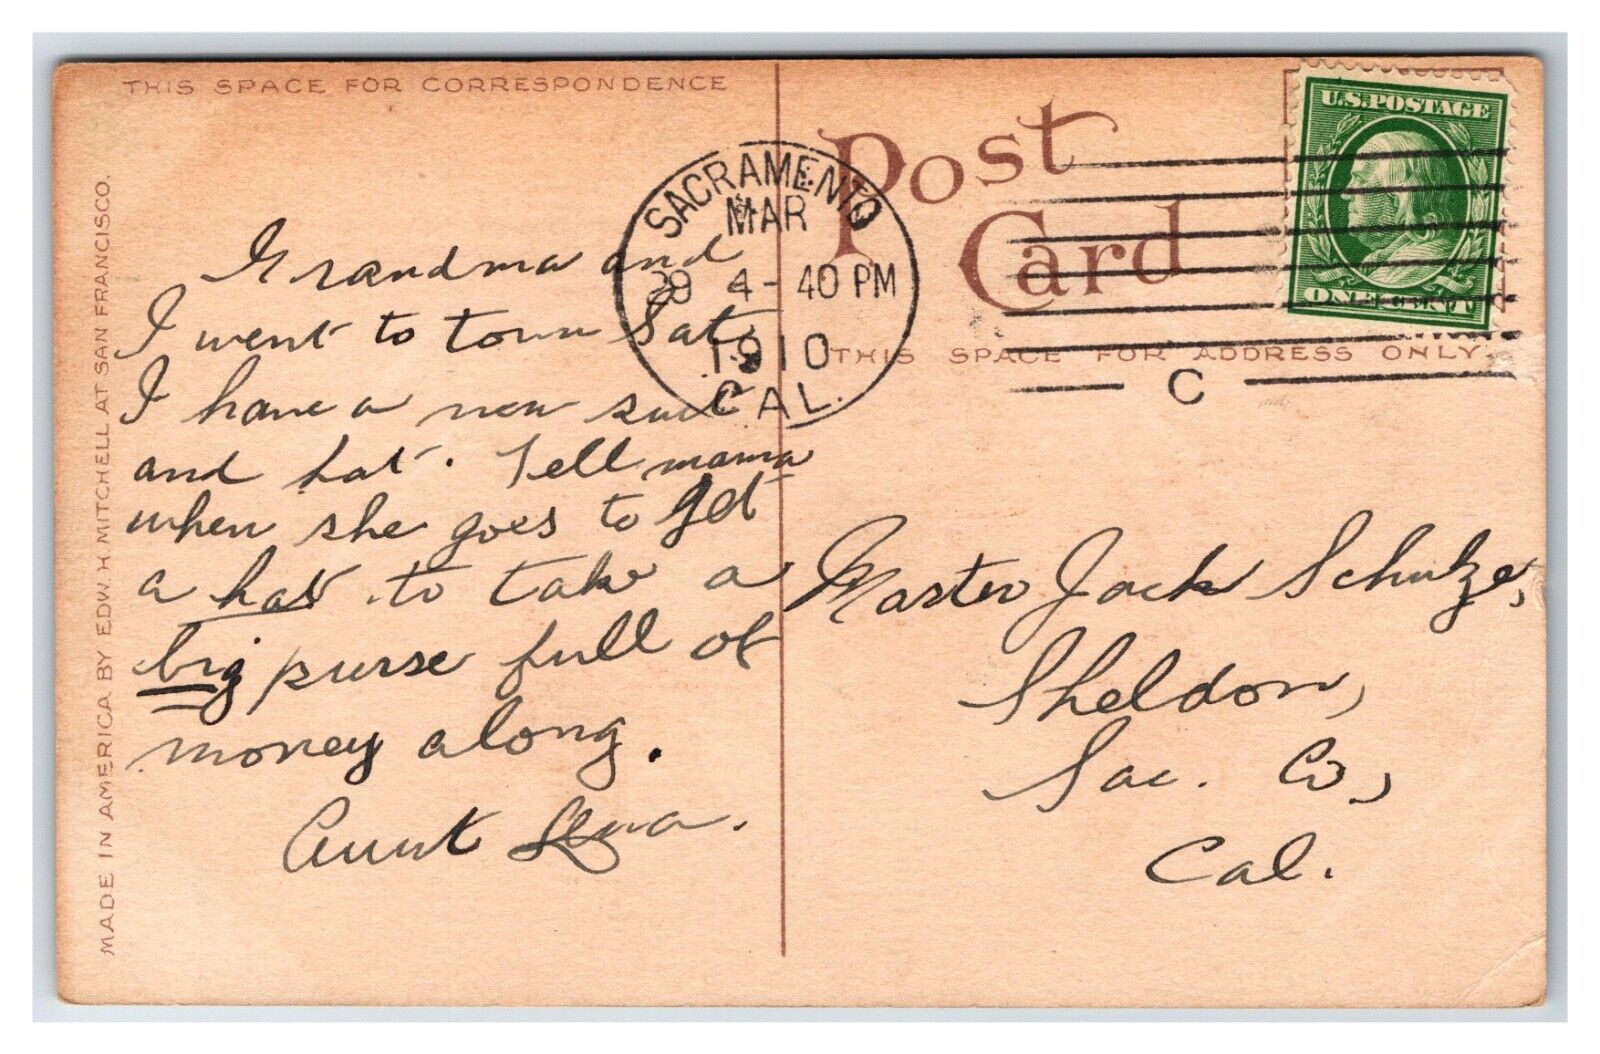 THIS SPACE FOR CORRESPONDENCE
MADE IN AMERICA BY EDW. H MITCHELL AT SAN FRANCISCO.
Grandma and
I went to town Sat.
I have a new suit
and hat. Tell mama
when she goes to get
a hat to take a
big purse full of
money along.
Aunt
SACRAMENTO
MAR
29 4-40 PM
1910
CAL.
Post
Card
THIS SPACE FOR ADDRESS ONLY.
C
U.S. POSTAGE
ONE CENT
Master Jack Schulze,
Sheldon,
Sac. Co,
Cal.